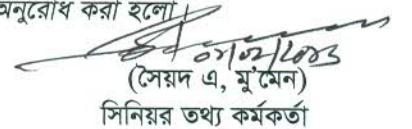 অনুরোধ করা হলো।
(সৈয়দ এ, মু'মেন)
সিনিয়র তথ্য কর্মকর্তা